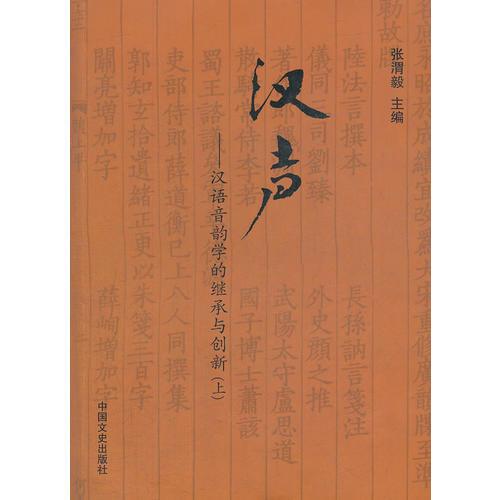 张渭毅 主编
汉声
——汉语音韵学的继承与创新(上)
中国文史出版社
陸法言撰本
長孫訥言箋注
儀同三司劉臻
外史顏之推
武陽太守盧思道
散騎常侍李若
國子博士蕭該
蜀王諮議
吏部侍郎薛道衡已上八人同撰集
郭知玄拾遺緒正更以朱箋三百字
關亮增加字
薛峋增加字